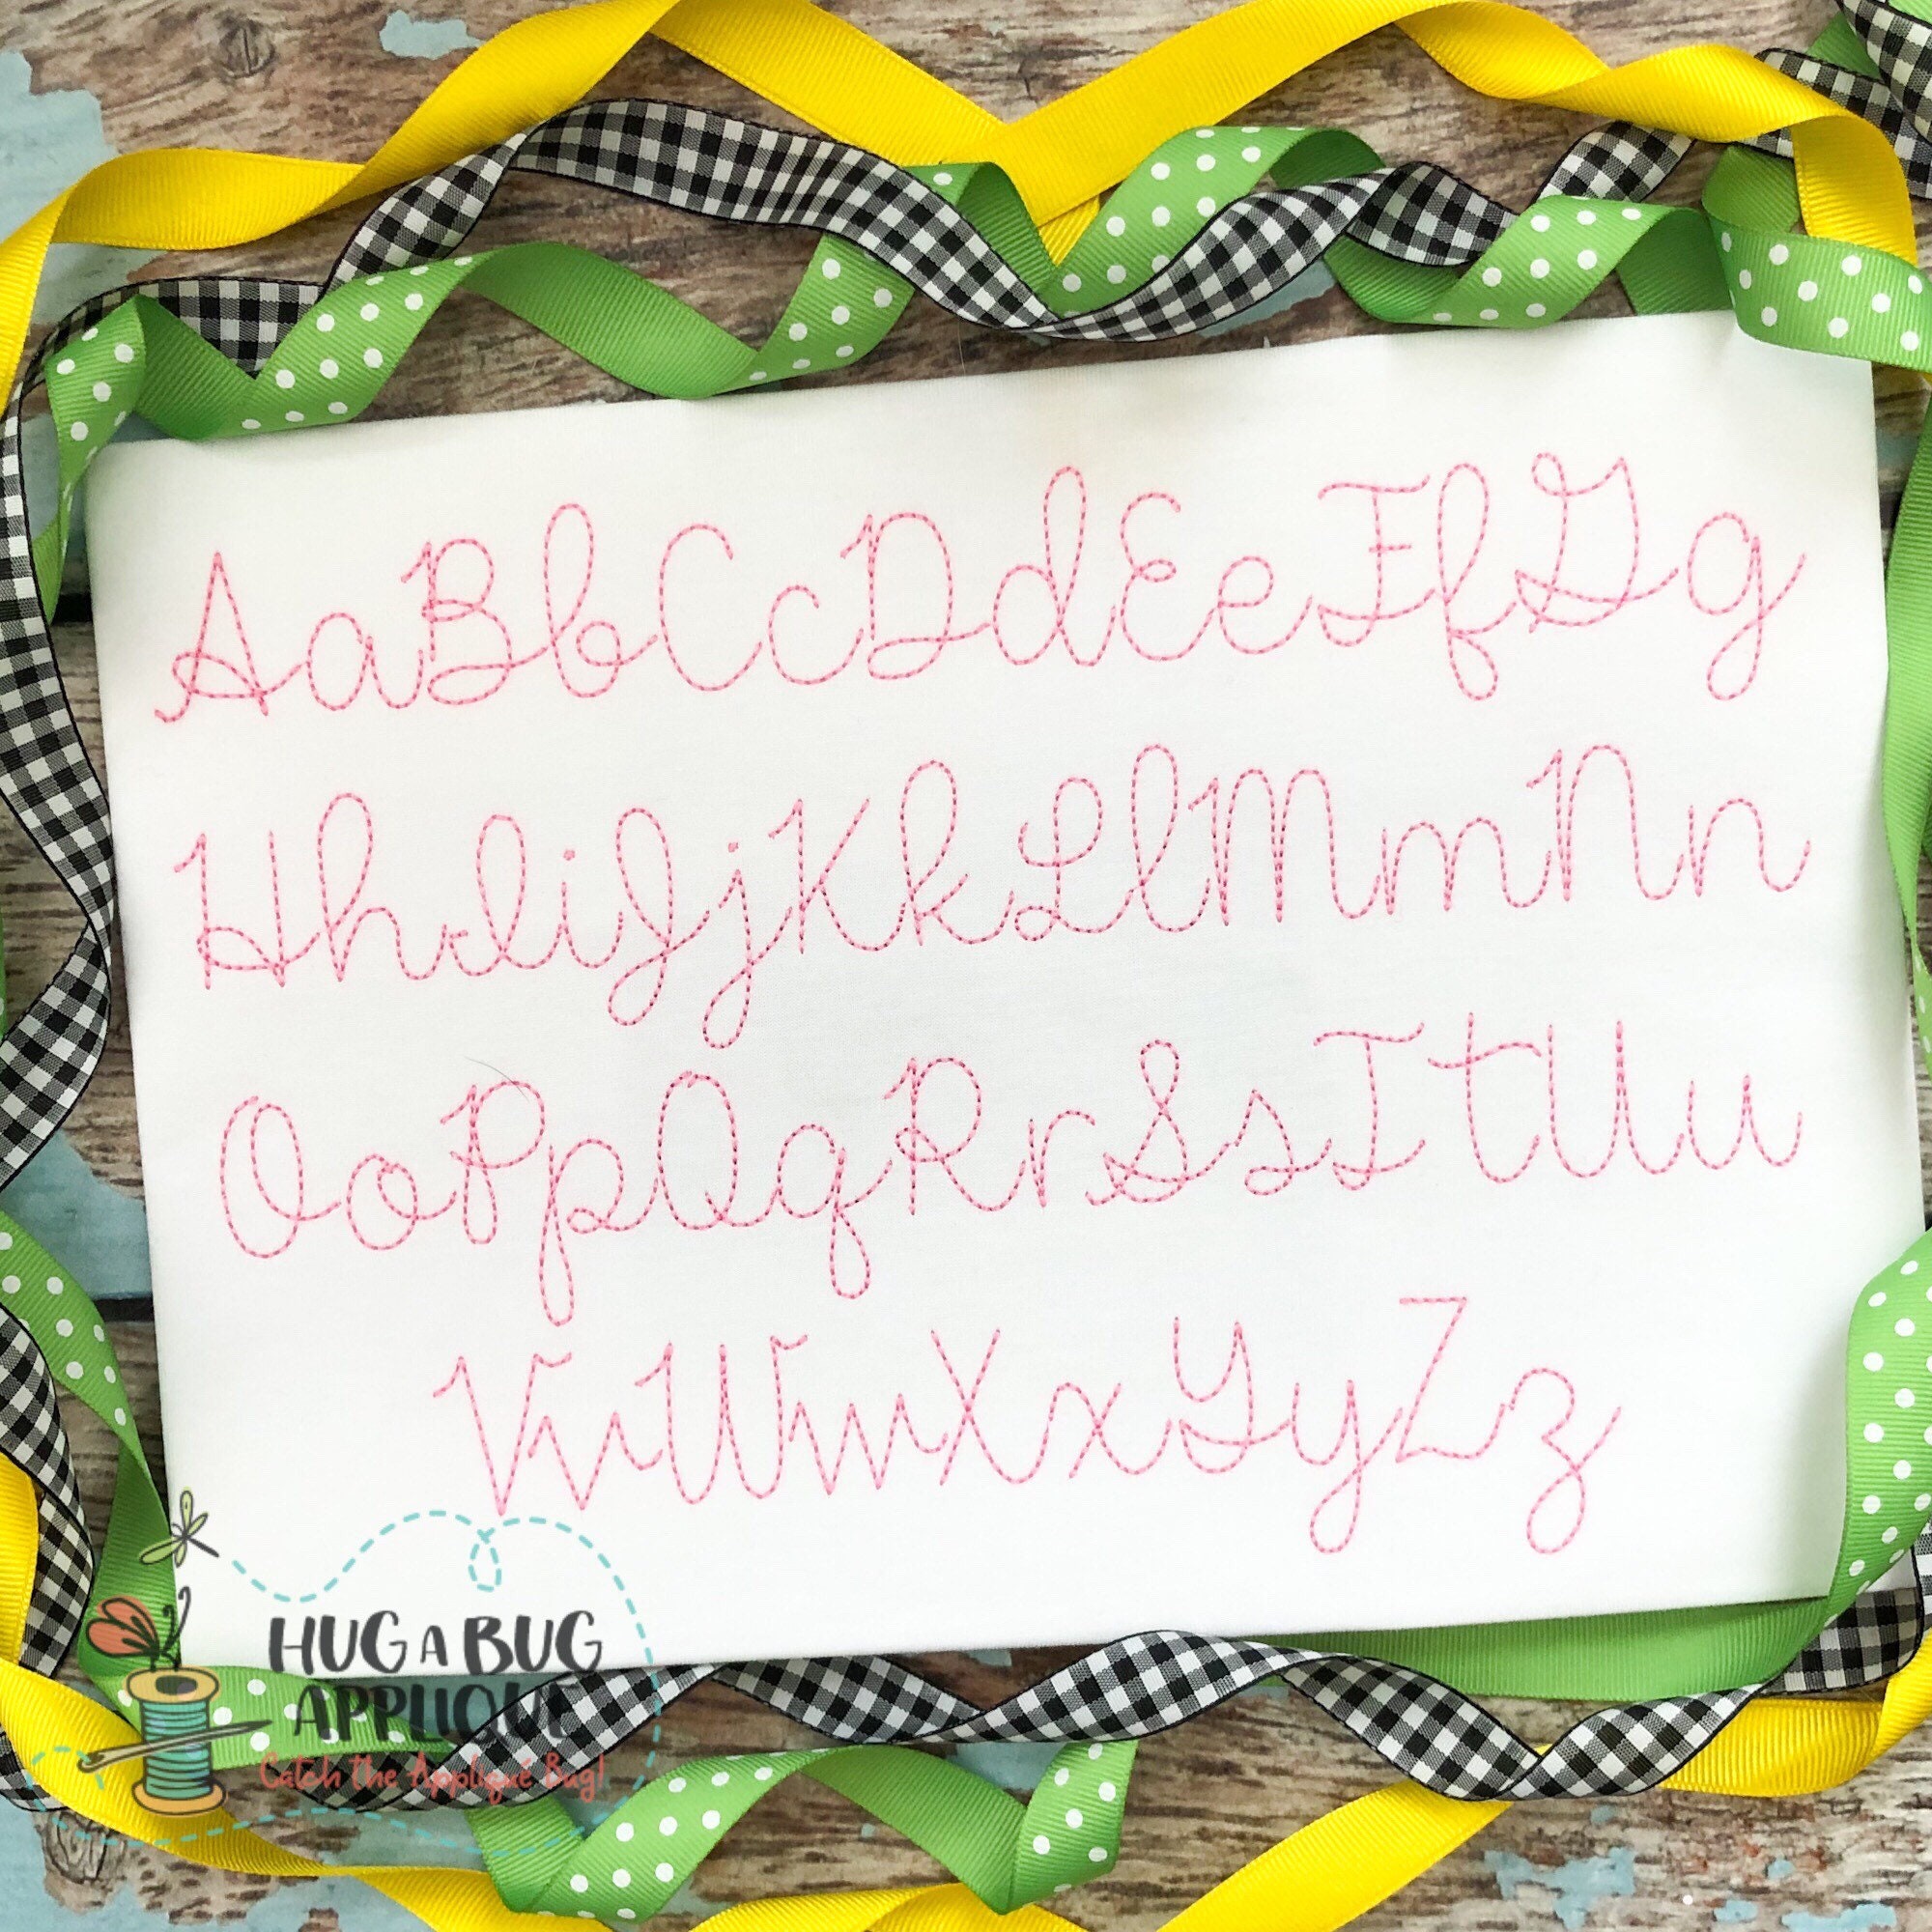 AaBbCcDdEeFfGg
HhIiJjKkLlMmNn
OoPpQqRrSsTtUu
VvWwXxYyZz
HUG A BUG
APPLIQUÉ
Catch the Appliqué Bug!